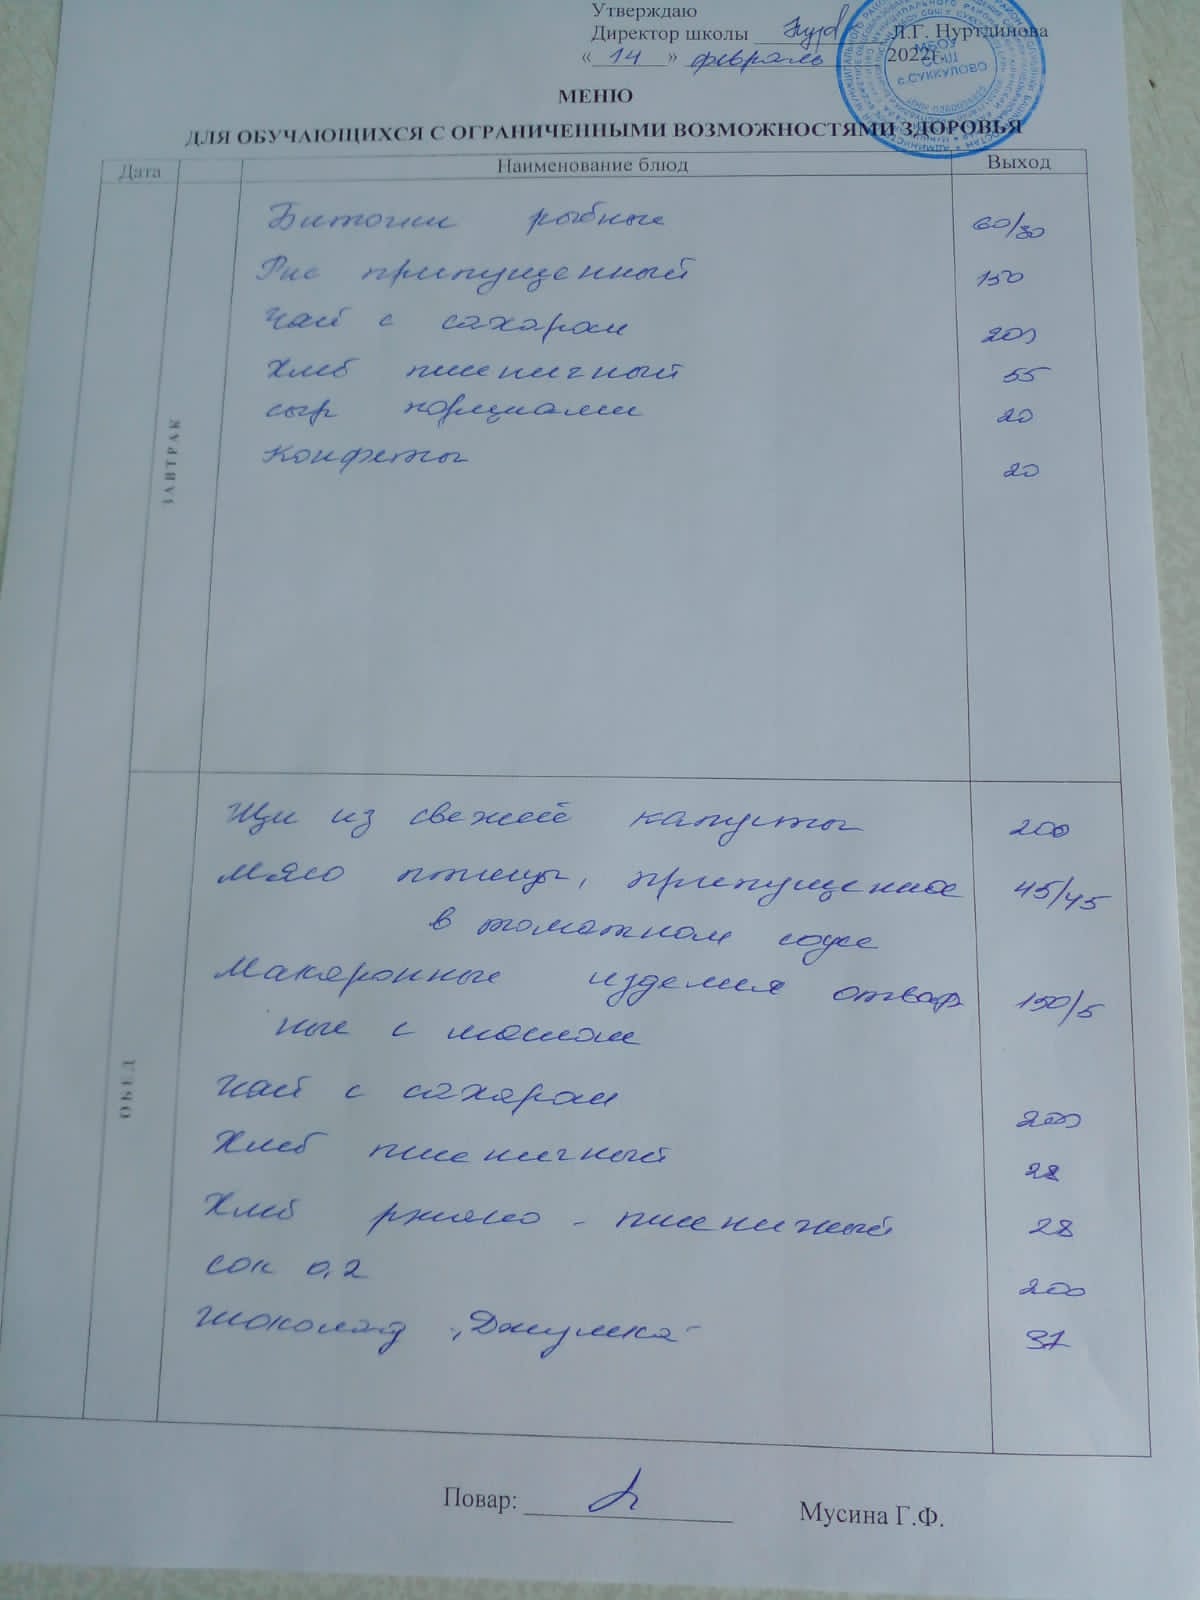 Утверждаю
Директор школы Л.Г. Нуртдинова
« 14 » февраль 2022г.
МБОУ
СОШ
с.СУККУЛОВО
МЕНЮ
ДЛЯ ОБУЧАЮЩИХСЯ С ОГРАНИЧЕННЫМИ ВОЗМОЖНОСТЯМИ ЗДОРОВЬЯ
Дата Наименование блюд Выход
ЗАВТРАК
Биточки рыбные 60/30
Рис припущенный 150
Чай с сахаром 200
Хлеб пшеничный 55
сыр порциями 20
Конфеты 20
ОБЕД
Щи из свежей капусты 200
Мясо птицы, припущенное 45/45
в томатном соусе
Макаронные изделия отвар 150/5
ные с маслом
Чай с сахаром 200
Хлеб пшеничный 28
Хлеб ржано - пшеничный 28
сок 0,2 200
Шоколад 37
Повар: Мусина Г.Ф.